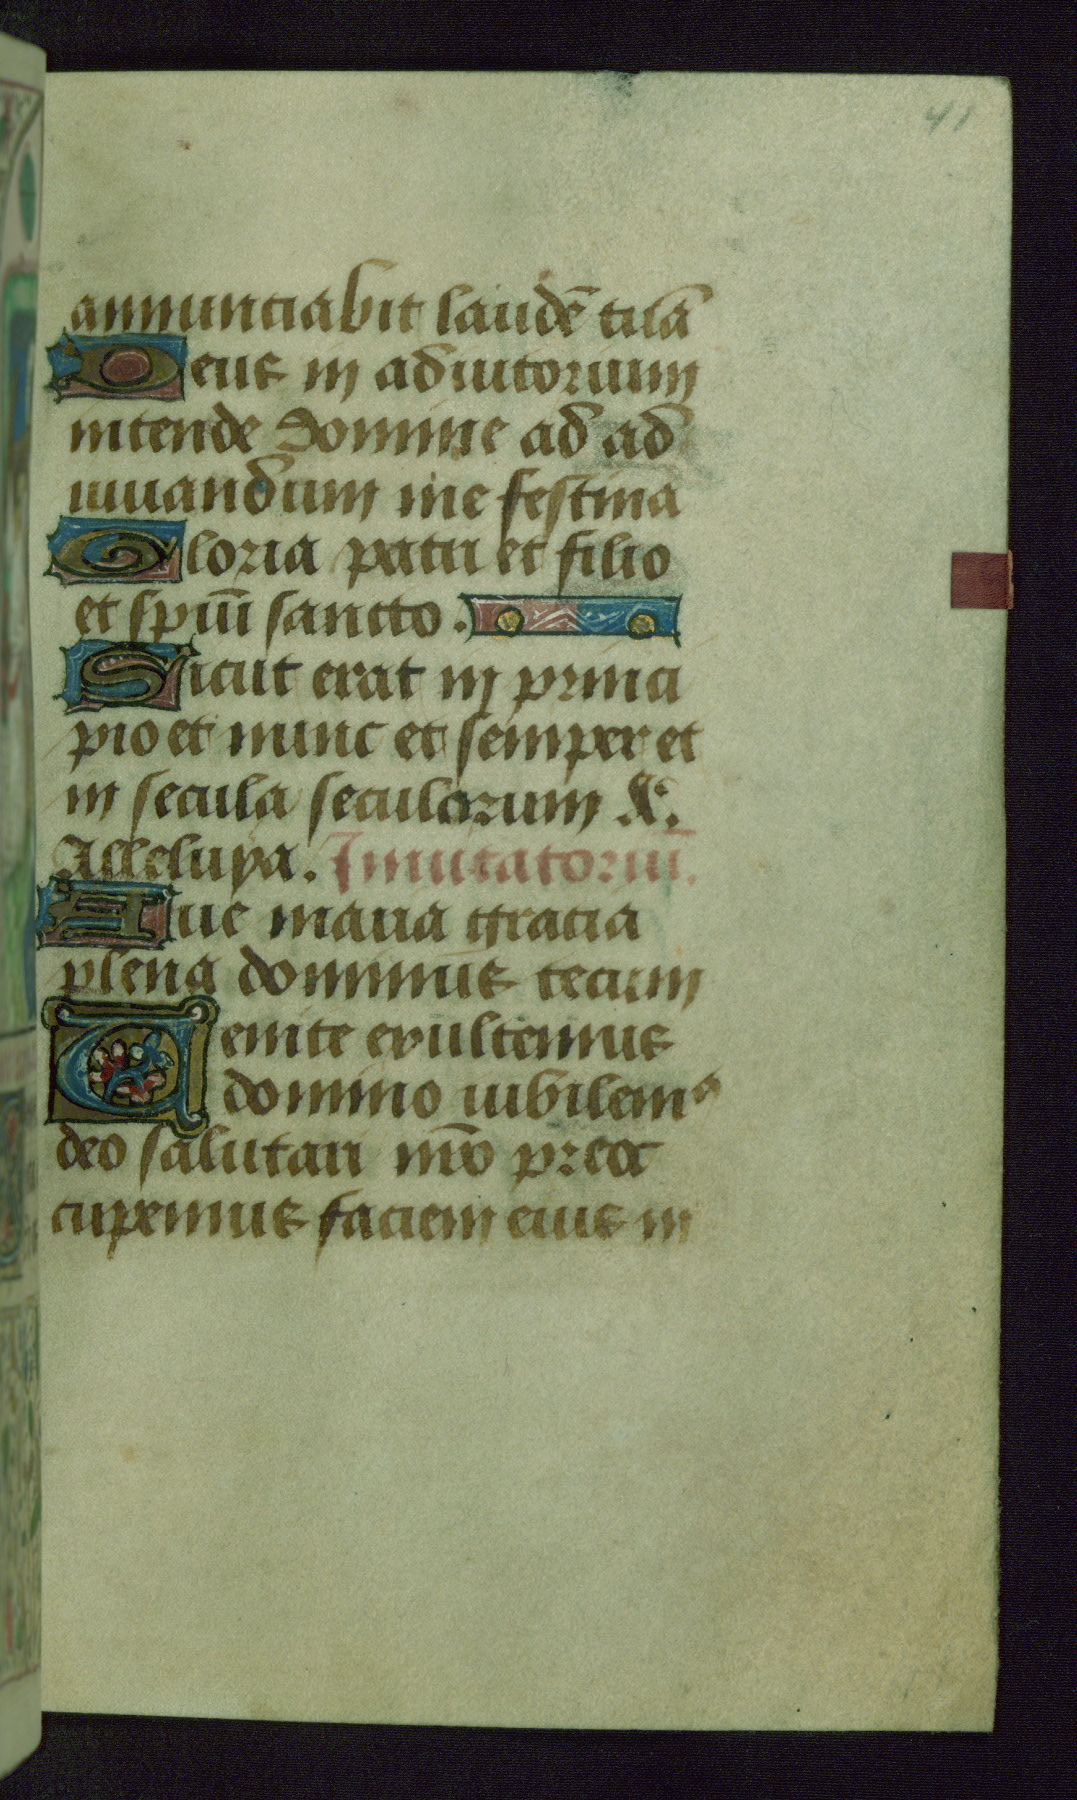 41
annunciabit laudē tuā
Deus in adiutorium
intende Domine ad ad
iuuandum me festina
Gloria patri et filio
et spiūi sancto.
Sicut erat in princi
pio et nunc et semper et
in secula seculorum A.
Alleluya. Inuitatoriū.
Aue maria gracia
plena dominus tecum
Uenite exultemus
domino iubilemꝰ
deo salutari nr̄o preoc
cupemus faciem eius in